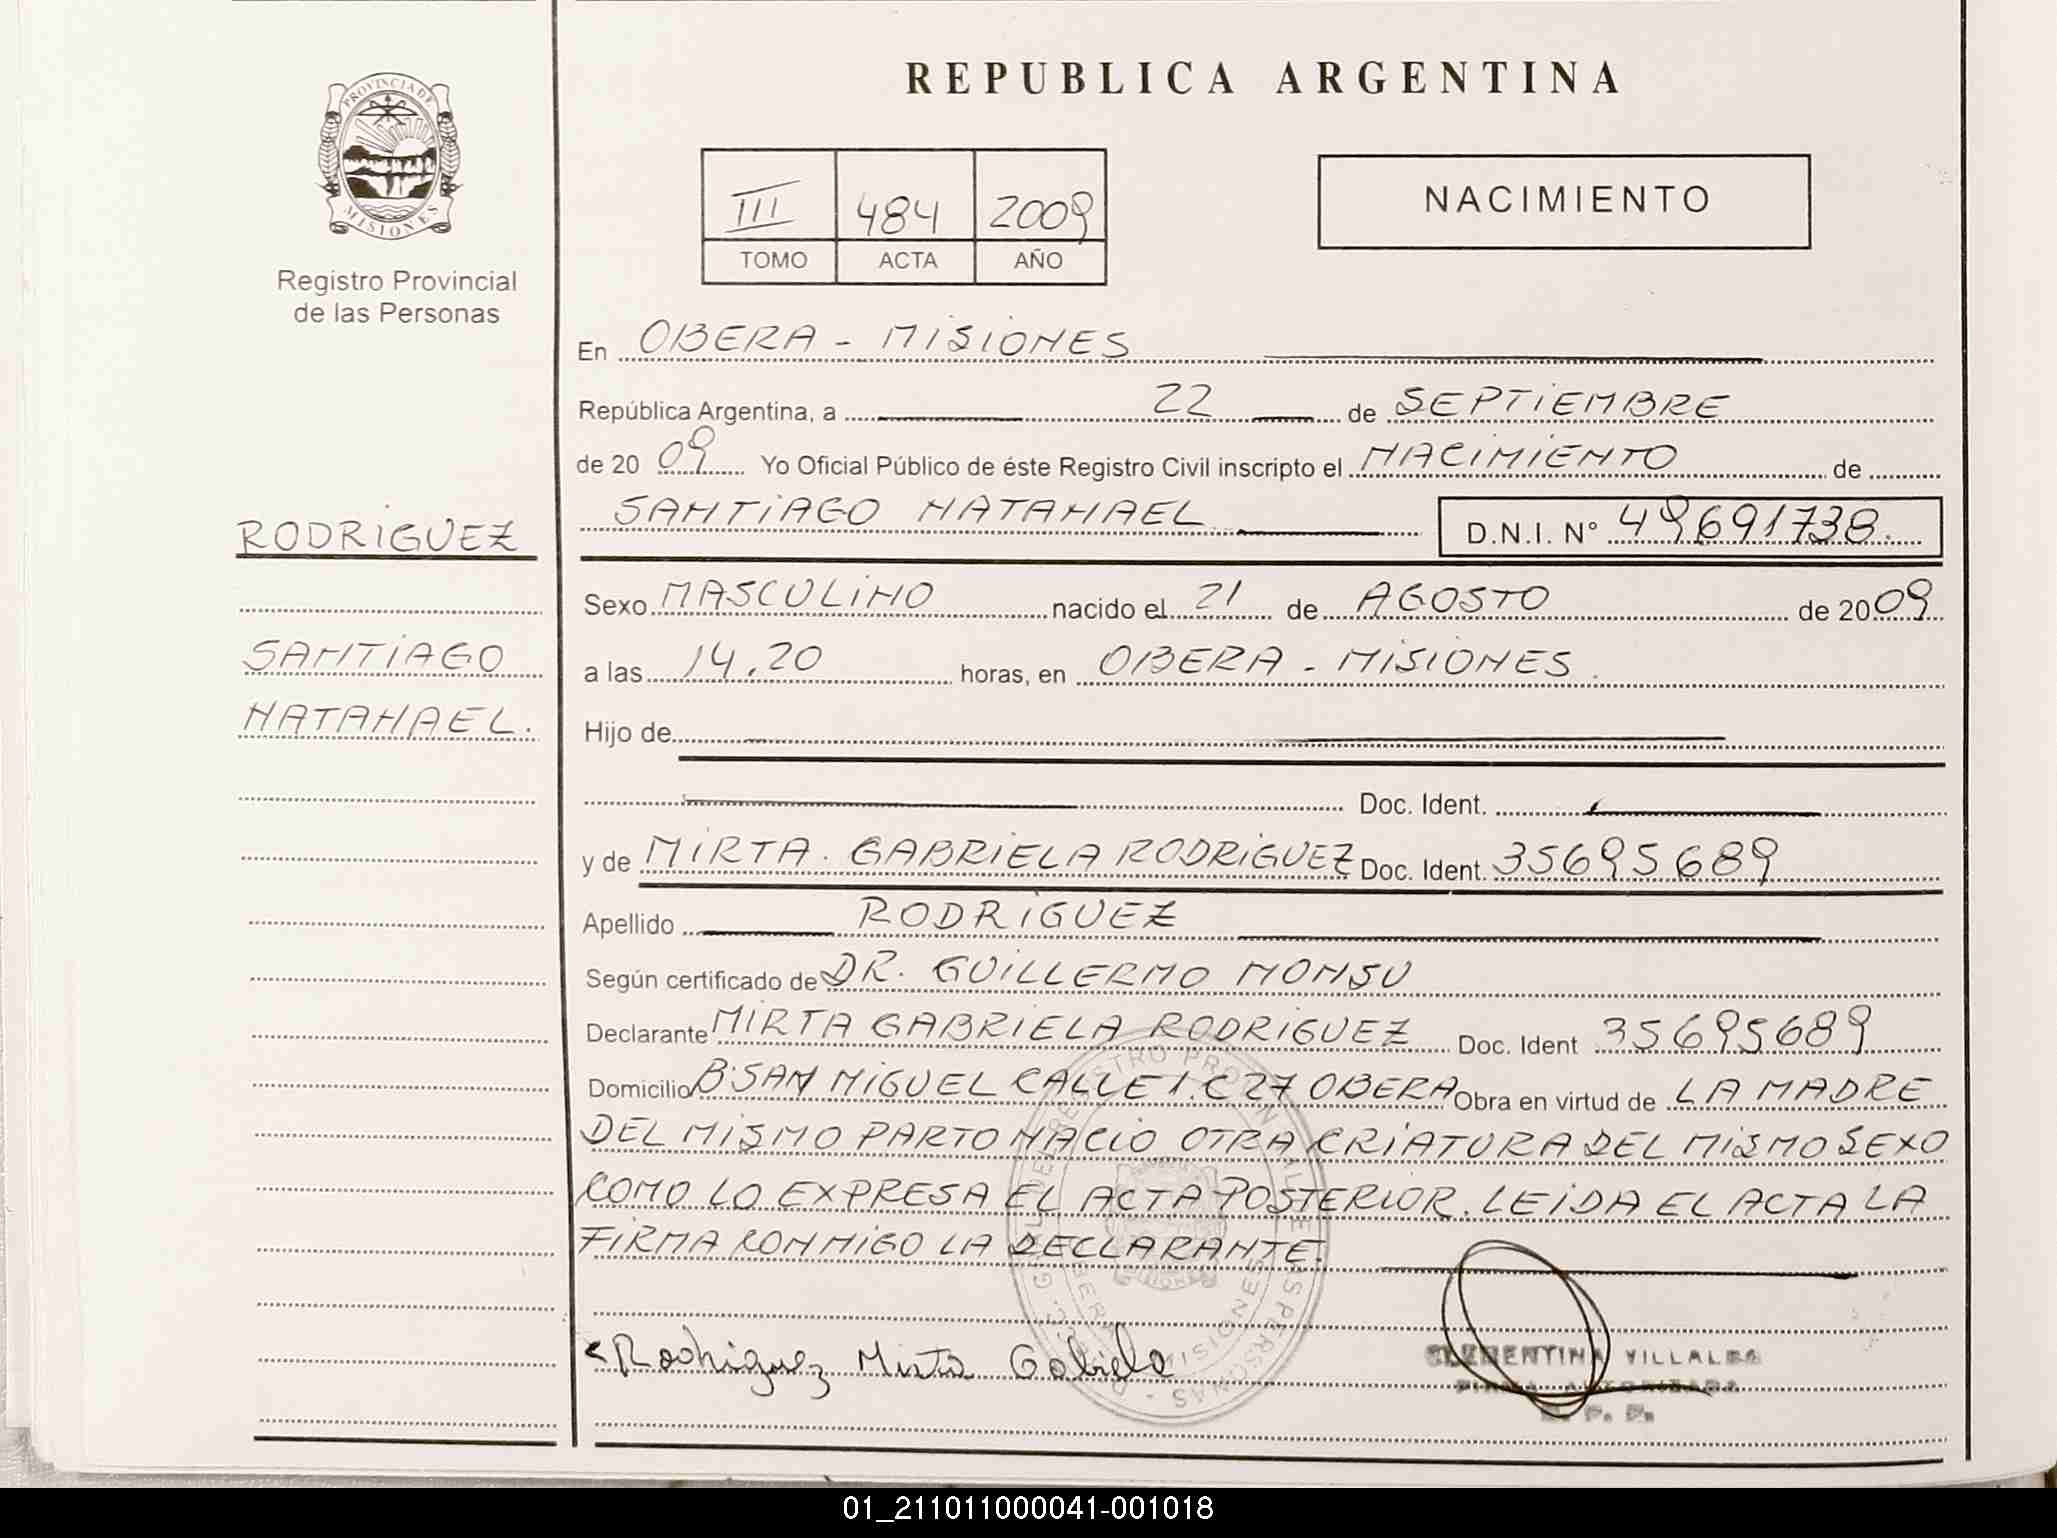 REPUBLICA ARGENTINA
PROVINCIA DE
MISIONES
Registro Provincial
de las Personas
III 484 2009
TOMO ACTA AÑO
NACIMIENTO
En OBERA - MISIONES
República Argentina, a 22 de SEPTIEMBRE
de 20 09 Yo Oficial Público de éste Registro Civil inscripto el NACIMIENTO de
SANTIAGO NATANAEL D.N.I. N° 49691738.
RODRIGUEZ
SANTIAGO
NATANAEL.
Sexo MASCULINO nacido el 21 de AGOSTO de 2009
a las 14.20 horas, en OBERA - MISIONES.
Hijo de
Doc. Ident.
y de MIRTA. GABRIELA RODRIGUEZ Doc. Ident. 35695689
Apellido RODRIGUEZ
Según certificado de DR. GUILLERMO MONSU
Declarante MIRTA GABRIELA RODRIGUEZ Doc. Ident 35695689
Domicilio B° SAN MIGUEL CALLE 1. C 27 OBERA Obra en virtud de LA MADRE
DEL MISMO PARTO NACIO OTRA CRIATURA DEL MISMO SEXO
COMO LO EXPRESA EL ACTA POSTERIOR. LEIDA EL ACTA LA
FIRMA CONMIGO LA DECLARANTE.
Rodriguez Mirta Gabriela
CLEMENTINA VILLALBA
FIRMA AUTORIZADA
R. P. P.
01_211011000041-001018